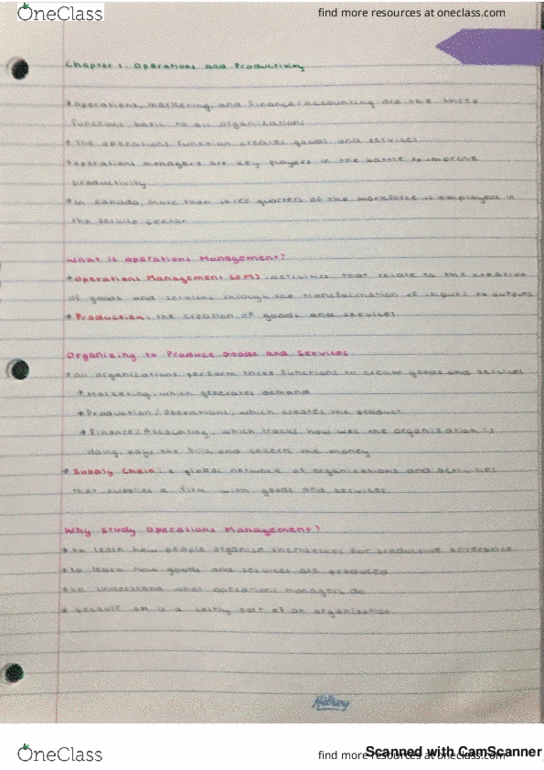 OneClass
find more resources at oneclass.com
Chapter 1: Operations and Productivity
*operations, marketing, and finance/accounting are the three
functions basic to all organizations
*the operations function creates goods and services
*operations managers are key players in the battle to improve
productivity
*in Canada, more than three quarters of the workforce is employed in
the service sector
What is Operations Management?
*Operations Management (OM): activities that relate to the creation
of goods and services through the transformation of inputs to outputs
*Production: the creation of goods and services
Organizing to Produce Goods and Services
*all organizations perform three functions to create goods and services
*Marketing, which generates demand
*Production/Operations, which creates the product
*Finance/Accounting, which tracks how well the organization is
doing, pays the bills and collects the money
*Supply Chain: a global network of organizations and activities
that supplies a firm with goods and services
Why Study Operations Management?
*to learn how people organize themselves for productive enterprise
*to learn how goods and services are produced
*to understand what operations managers do
*because OM is a costly part of an organization
OneClass
find more resources at oneclass.com
Scanned with CamScanner